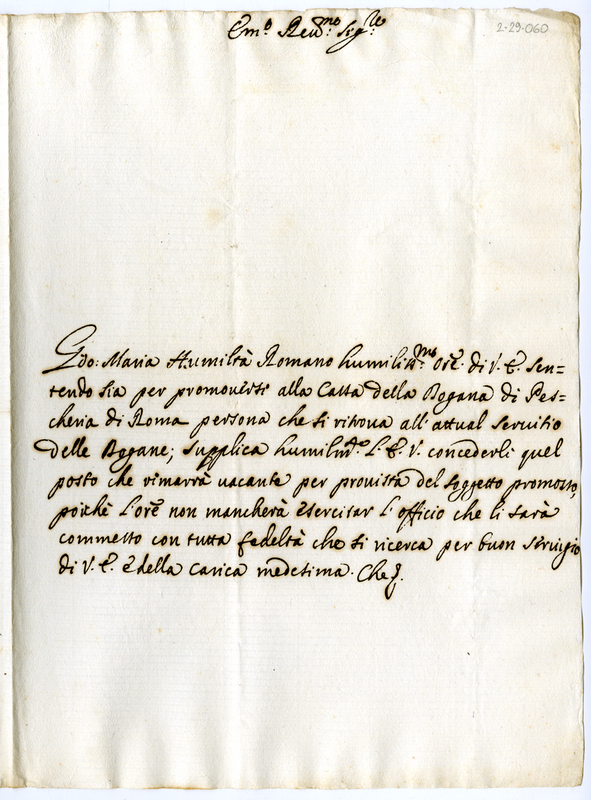 Em.º Reu.mo Sig.re
2-29-060
Gio: Maria Humiltà Romano humiliss.mo Ore. di V. E. sen=
tendo sia per promouersi alla Cassa della Dogana di Pes=
cheria di Roma persona che si ritroua all'attual seruitio
delle Dogane; supplica humilm.te L. E. V. concederli quel
posto che rimarrà uacante per prouista del soggetto promosso,
poiche L'ore non mancherà esercitar L'officio che li sarà
commesso con tutta fedeltà che si ricerca per buon seruigio
di V. E. e della carica medesima. Che